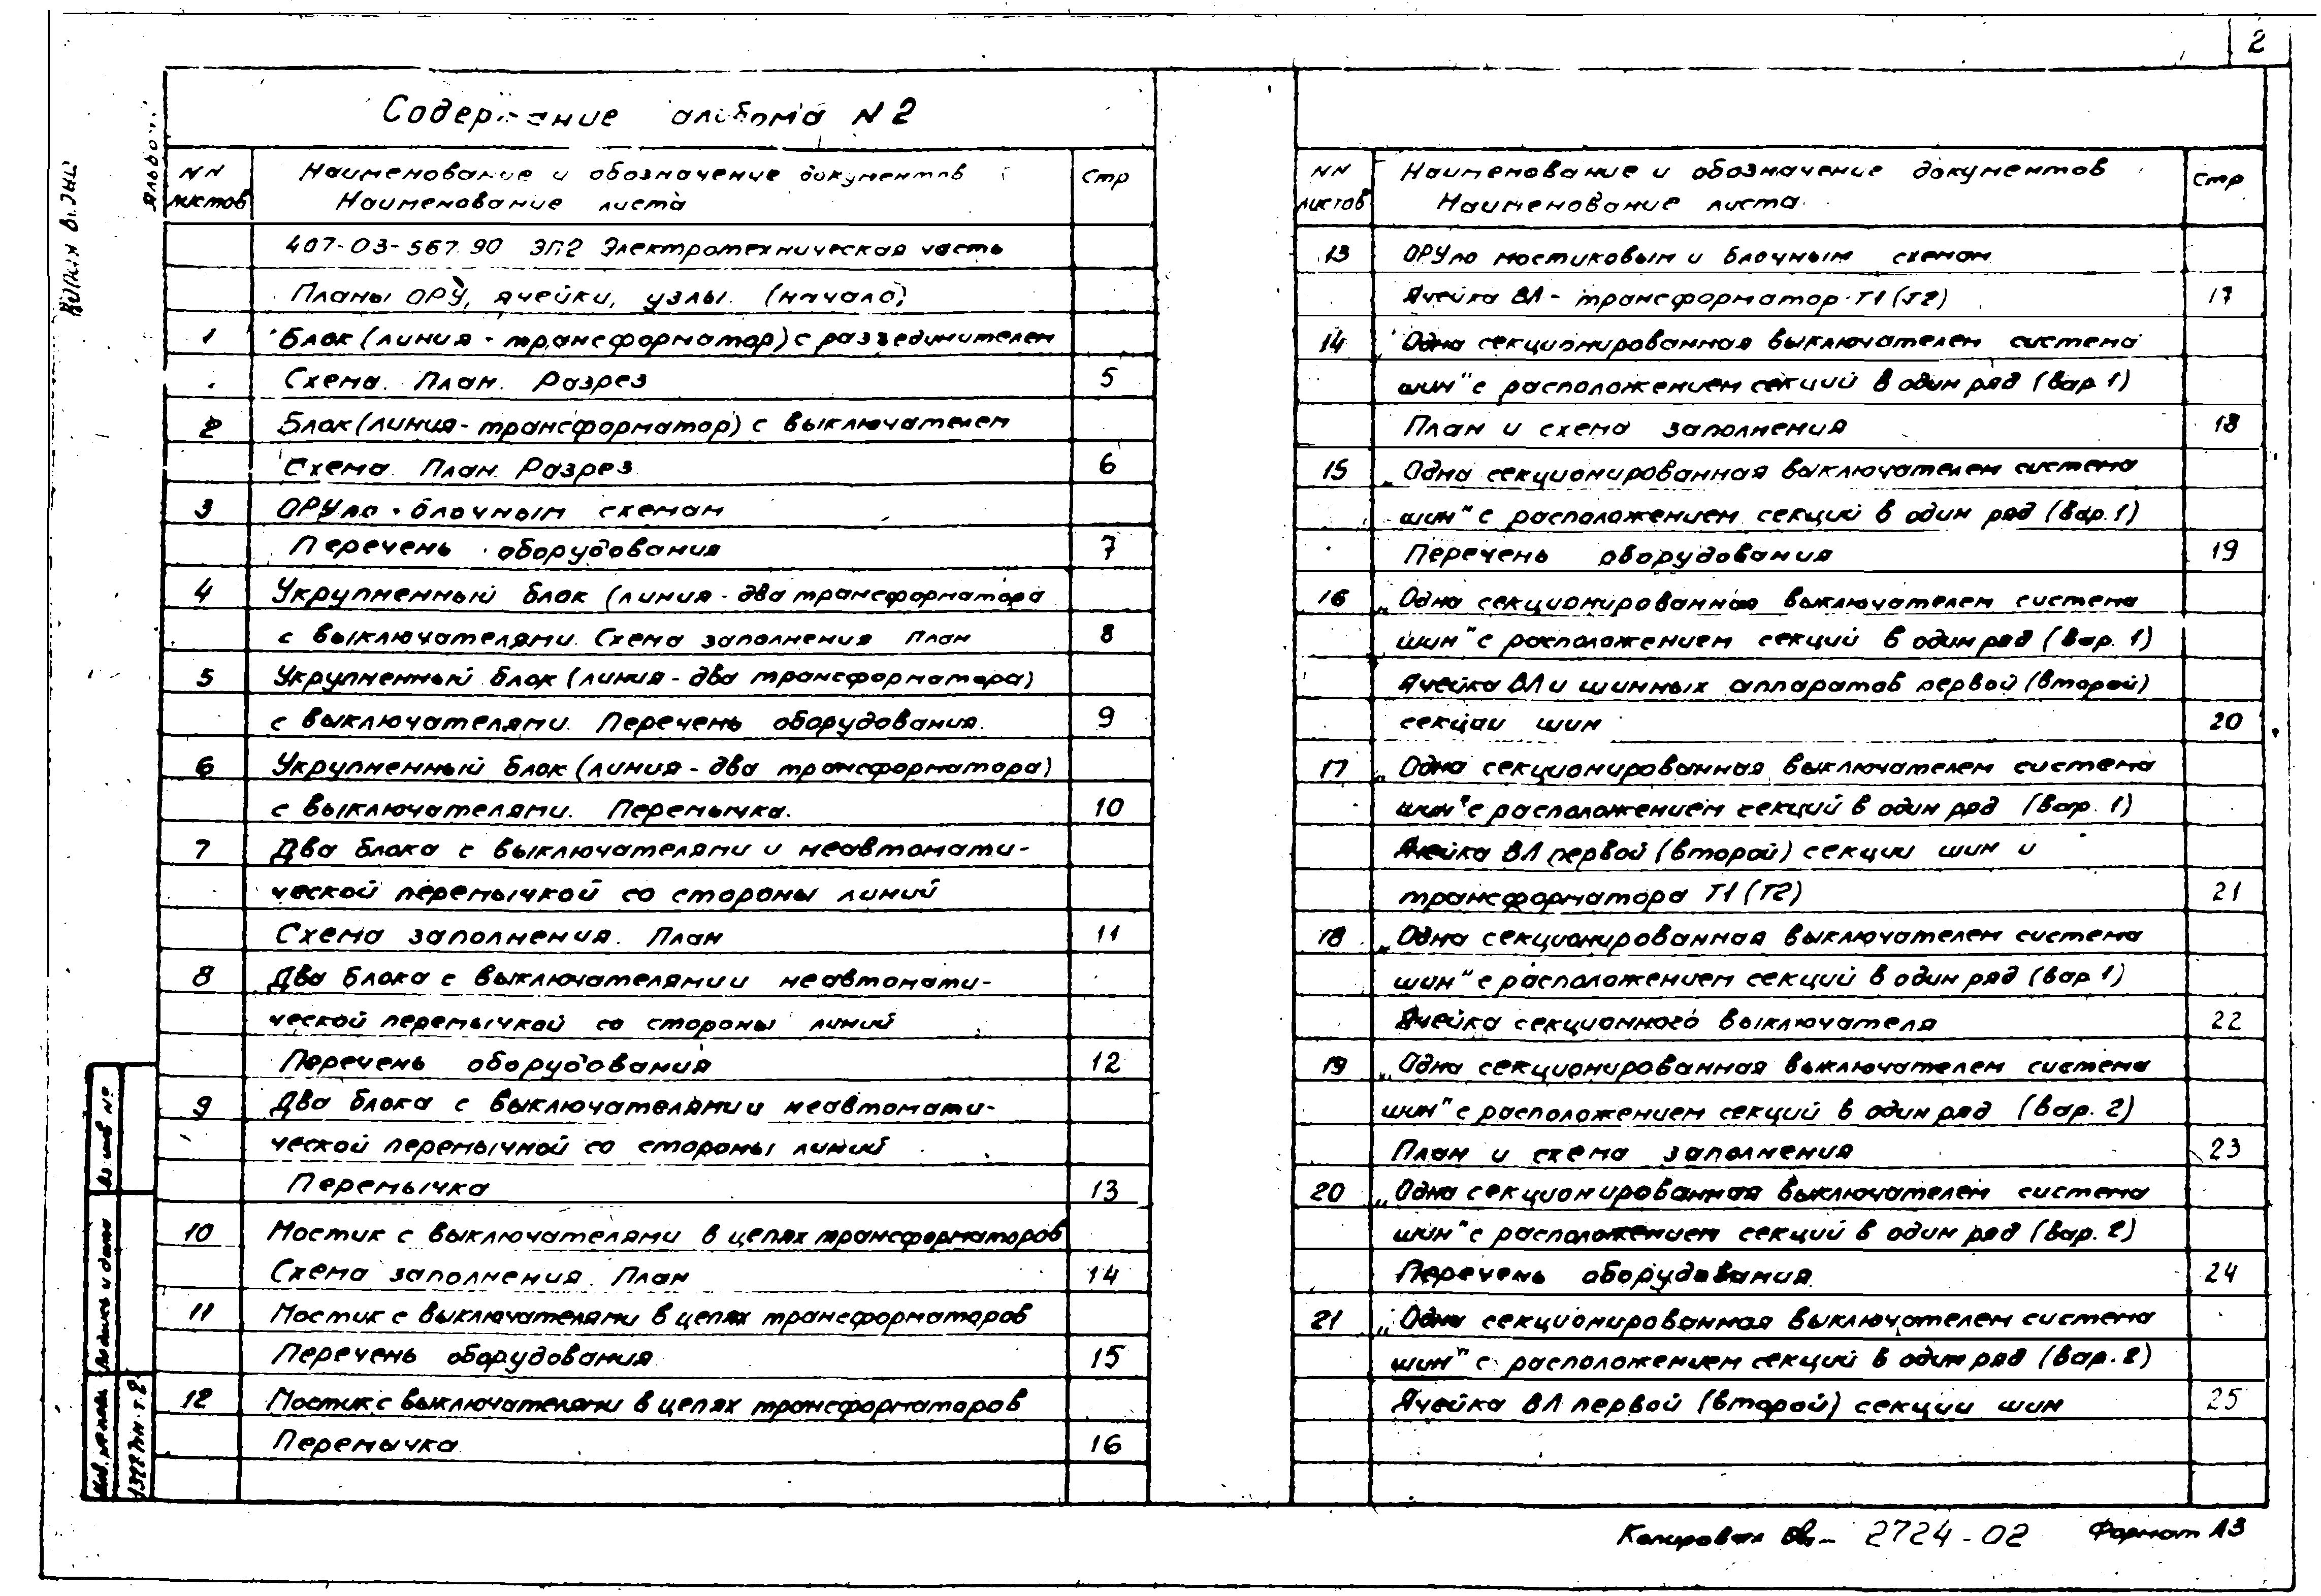 2
Содержание альбома N 2
NN листов
Наименование и обозначение документов
Наименование листа
Стр
407-03-567.90 ЭП2 Электротехническая часть
Планы ОРУ, ячейки, узлы. (начало)
1 Блок (линия - трансформатор) с разъединителем
Схема. План. Разрез 5
2 Блок (линия - трансформатор) с выключателем
Схема. План. Разрез 6
3 ОРУ по блочным схемам
Перечень оборудования 7
4 Укрупненный блок (линия - два трансформатора
с выключателями. Схема заполнения План 8
5 Укрупненный блок (линия - два трансформатора)
с выключателями. Перечень оборудования. 9
6 Укрупненный блок (линия - два трансформатора)
с выключателями. Перемычка. 10
7 Два блока с выключателями и неавтомати-
ческой перемычкой со стороны линий
Схема заполнения. План 11
8 Два блока с выключателями и неавтомати-
ческой перемычкой со стороны линий
Перечень оборудования 12
9 Два блока с выключателями и неавтомати-
ческой перемычкой со стороны линий
Перемычка 13
10 Мостик с выключателями в цепях трансформаторов
Схема заполнения. План 14
11 Мостик с выключателями в цепях трансформаторов
Перечень оборудования 15
12 Мостик с выключателями в цепях трансформаторов
Перемычка 16
NN листов
Наименование и обозначение документов
Наименование листа
Стр
13 ОРУ по мостиковым и блочным схемам
Ячейка ВЛ - трансформатор Т1 (Т2) 17
14 "Одна секционированная выключателем система
шин" с расположением секций в один ряд (вар 1)
План и схема заполнения 18
15 „Одна секционированная выключателем система
шин" с расположением секций в один ряд (вар. 1)
Перечень оборудования 19
16 „Одна секционированная выключателем система
шин" с расположением секций в один ряд (вар. 1)
Ячейка ВЛ и шинных аппаратов первой (второй)
секции шин 20
17 „Одна секционированная выключателем система
шин" с расположением секций в один ряд (вар. 1)
Ячейка ВЛ первой (второй) секции шин и
трансформатора Т1 (Т2) 21
18 „Одна секционированная выключателем система
шин" с расположением секций в один ряд (вар 1)
Ячейка секционного выключателя 22
19 „Одна секционированная выключателем система
шин" с расположением секций в один ряд (вар. 2)
План и схема заполнения 23
20 „Одна секционированная выключателем система
шин" с расположением секций в один ряд (вар. 2)
Перечень оборудования 24
21 „Одна секционированная выключателем система
шин" с расположением секций в один ряд (вар. 2)
Ячейка ВЛ первой (второй) секции шин 25
Вз инв №
Подпись и дата
Инв. № подл
Копировал 2724-02 Формат А3